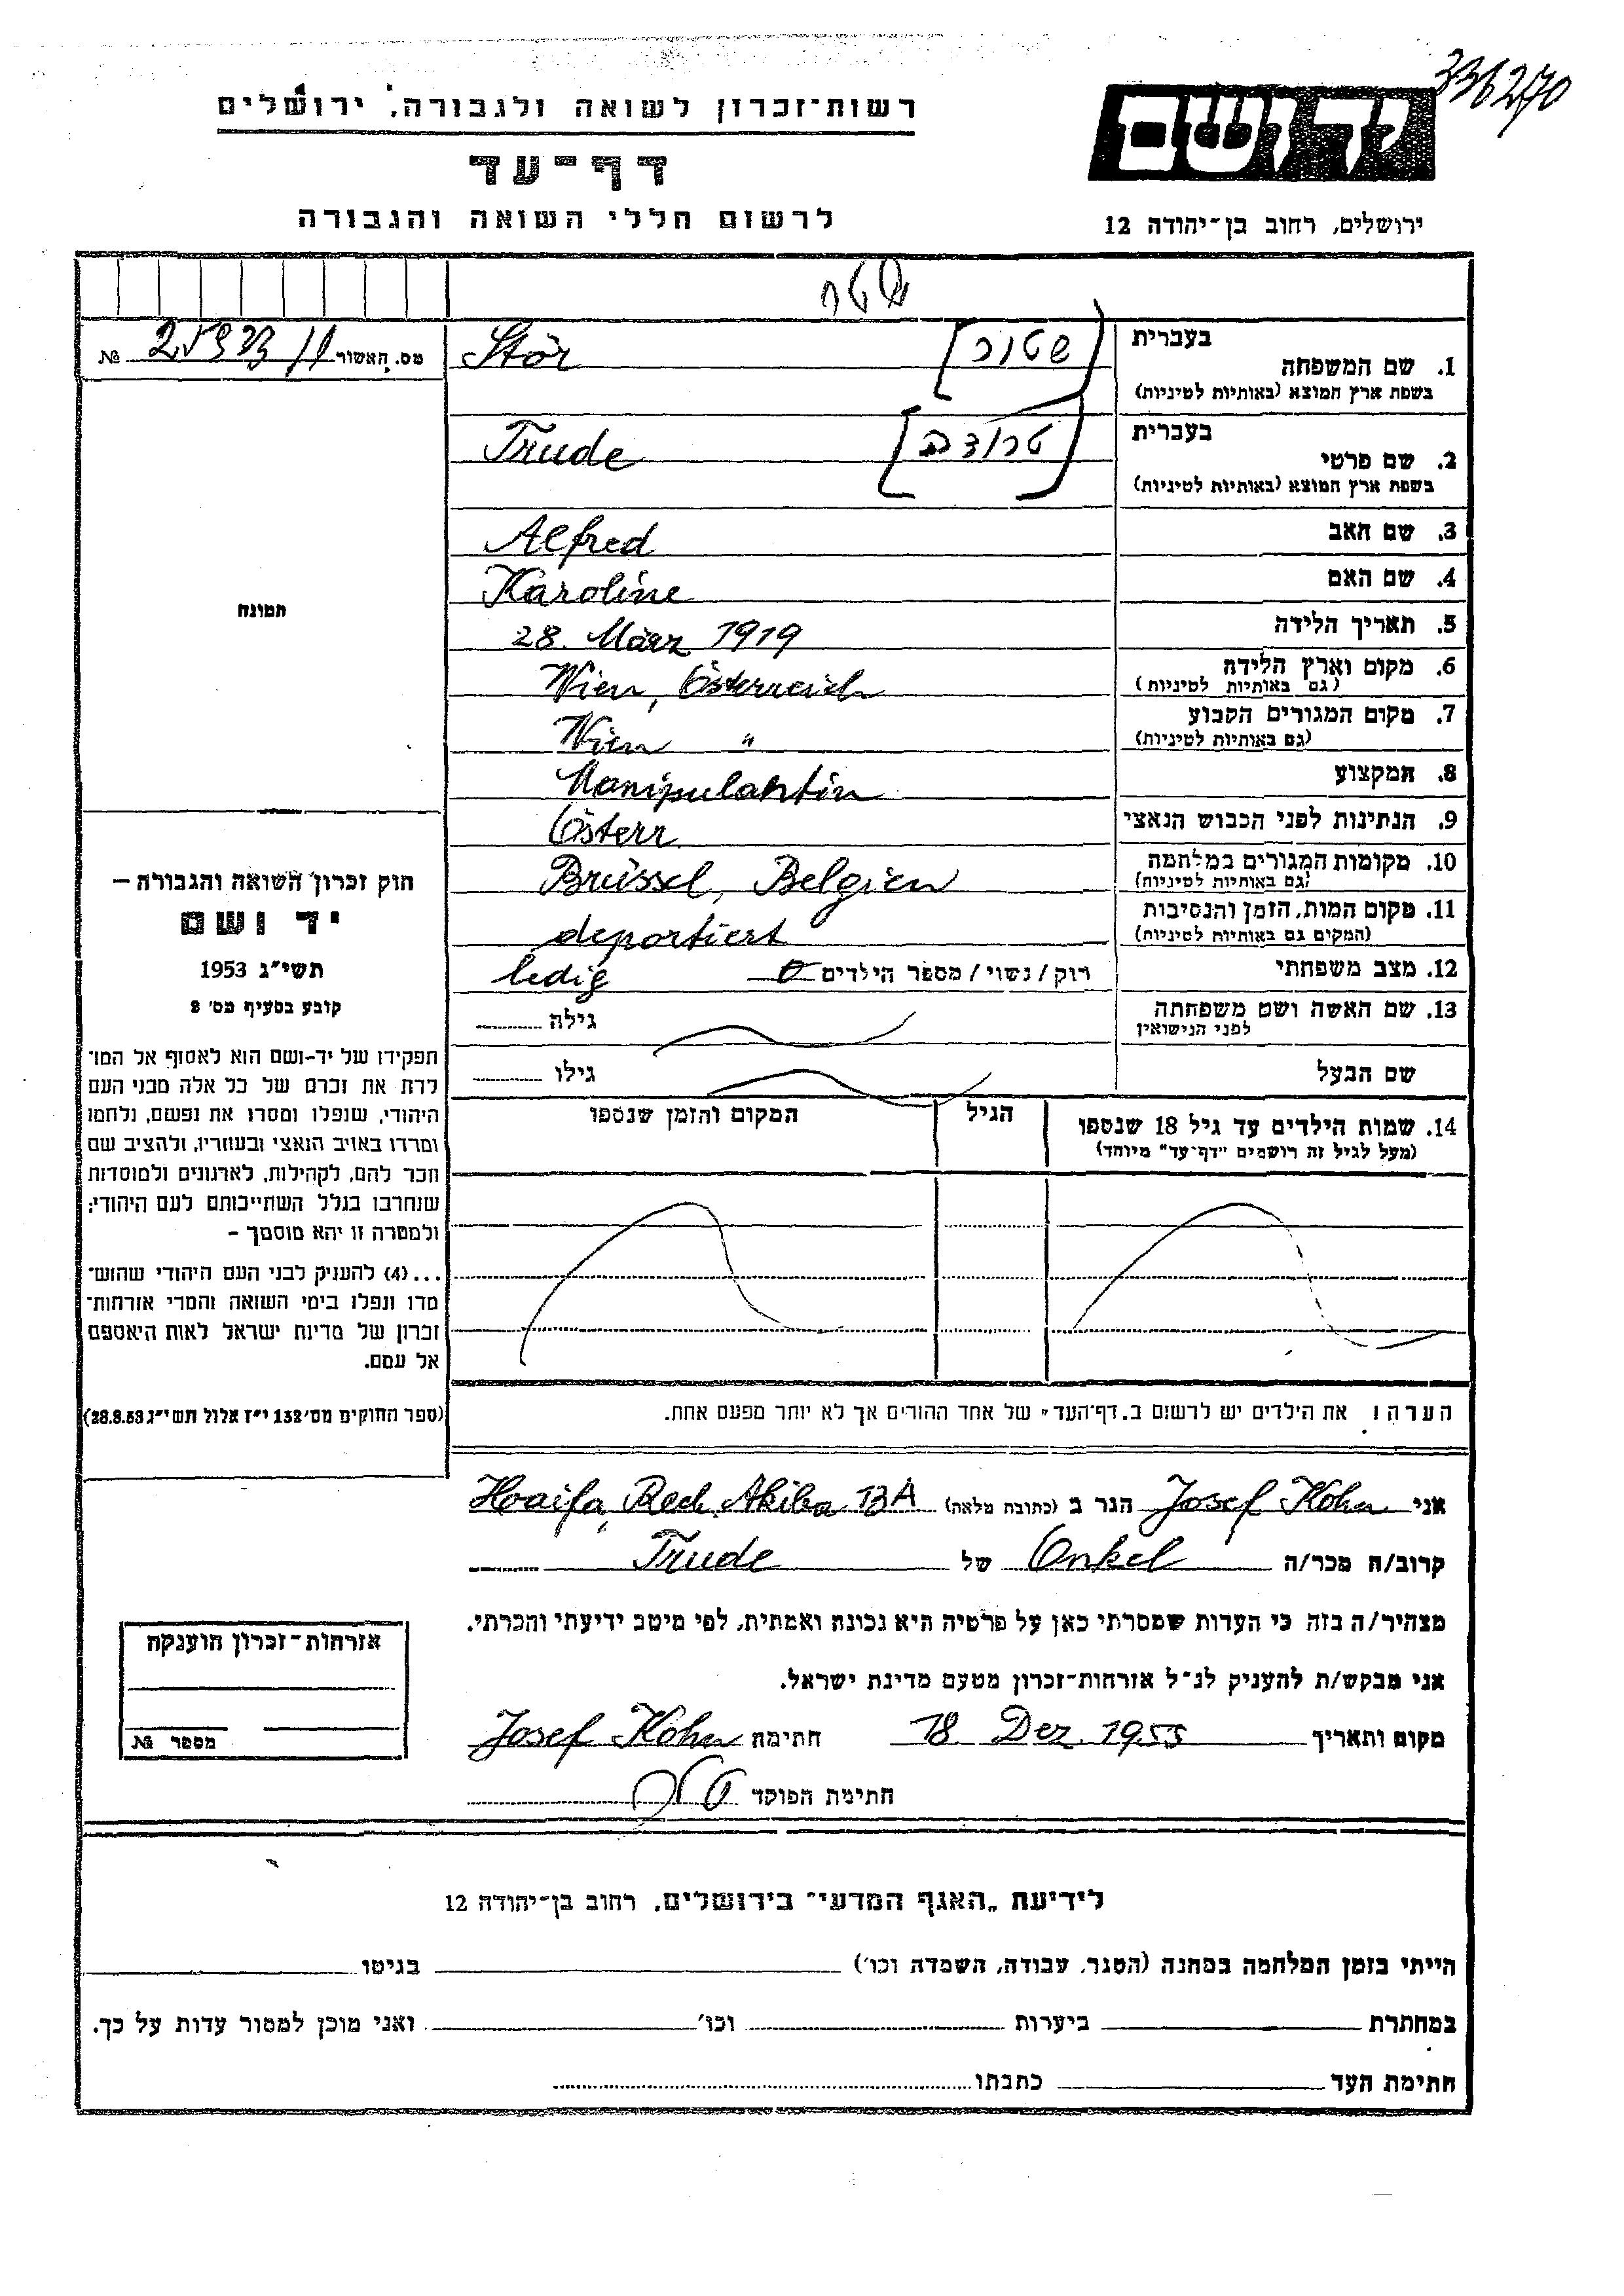 336270
יד ושם
רשות־זכרון לשואה ולגבורה, ירושלים
דף־עד
לרשום חללי השואה והגבורה
ירושלים, רחוב בן־יהודה 12
שטר
מס. האשור №
1. שם המשפחה בעברית [שטור]
בשפת ארץ המוצא (באותיות לטיניות) Stör
2. שם פרטי בעברית [טרודה]
בשפת ארץ המוצא (באותיות לטיניות) Trude
3. שם האב Alfred
4. שם האם Karoline
5. תאריך הלידה 28. März 1919
6. מקום וארץ הלידה (גם באותיות לטיניות) Wien, Österreich
7. מקום המגורים הקבוע (גם באותיות לטיניות) Wien "
8. המקצוע Manipulantin
9. הנתינות לפני הכבוש הנאצי Österr.
10. מקומות המגורים במלחמה (גם באותיות לטיניות) Brüssel, Belgien
11. מקום המות, הזמן והנסיבות (המקום גם באותיות לטיניות) deportiert
12. מצב משפחתי רוק/נשוי/מספר הילדים 0 ledig
13. שם האשה ושם משפחתה לפני הנישואין גילה
שם הבעל גילו
14. שמות הילדים עד גיל 18 שנספו הגיל המקום והזמן שנספו
(מעל לגיל זה רושמים "דף־עד" מיוחד)
הערה: את הילדים יש לרשום ב„דף־העד" של אחד ההורים אך לא יותר מפעם אחת.
תמונה
חוק זכרון השואה והגבורה –
יד ושם
תשי"ג 1953
קובע בסעיף מס' 2
תפקידו של יד-ושם הוא לאסוף אל המו־
לדת את זכרם של כל אלה מבני העם
היהודי, שנפלו ומסרו את נפשם, נלחמו
ומרדו באויב הנאצי ובעוזריו, ולהציב שם
וזכר להם, לקהילות, לארגונים ולמוסדות
שנחרבו בגלל השתייכותם לעם היהודי;
ולמטרה זו יהא מוסמך –
...(4) להעניק לבני העם היהודי שהוש־
מדו ונפלו בימי השואה והמרי אזרחות־
זכרון של מדינת ישראל לאות היאספם
אל עמם.
(ספר החוקים מס' 132 י"ז אלול תשי"ג 28.8.53)
אני Josef Kohn הגר ב (כתובת מלאה) Haifa, Rech. Akiba 13A
קרוב/ה מכר/ה Onkel של Trude
מצהיר/ה בזה כי העדות שמסרתי כאן על פרטיה היא נכונה ואמתית, לפי מיטב ידיעתי והכרתי.
אני מבקש/ת להעניק לנ"ל אזרחות־זכרון מטעם מדינת ישראל.
מקום ותאריך 18 Dez. 1955 חתימה Josef Kohn
חתימת הפוקד
אזרחות־זכרון הוענקה
מספר №
לידיעת „האגף המדעי" בירושלים, רחוב בן־יהודה 12
הייתי בזמן המלחמה במחנה (הסגר, עבודה, השמדה וכו') בגיטו
במחתרת ביערות וכו' ואני מוכן למסור עדות על כך.
חתימת העד כתבתו